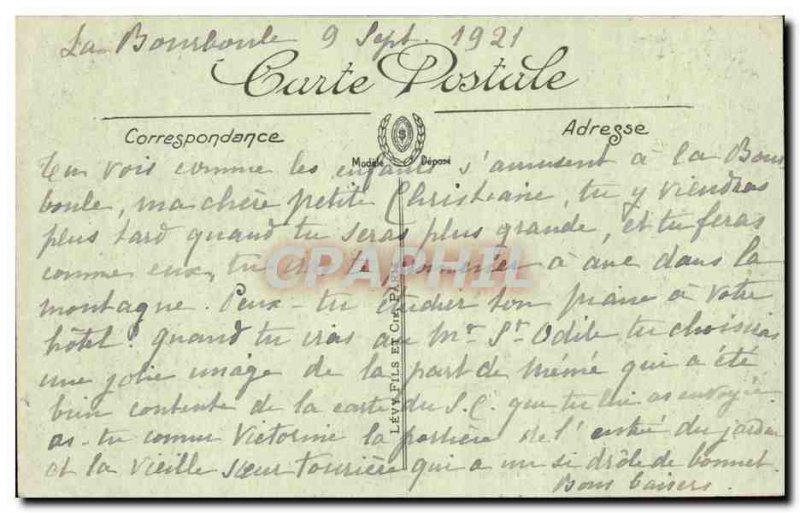 La Bourboule 9 Sept. 1921
Carte Postale
Correspondance
Adresse
Modèle Déposé
Tu vois comme les enfants s'amusent à la Bour
boule, ma chère petite Christiane, tu y viendras
plus tard quand tu seras plus grande, et tu feras
comme eux, tu iras te promener à âne dans la
montagne. Peux-tu étudier ton piano à votre
hôtel? quand tu iras au Mt Ste Odile tu choisiras
une jolie image de la part de Mémé qui a été
bien contente de la carte du S.C. que tu lui as envoyée
as-tu connu Victorine la portière de l'entrée du jardin
et la vieille sœur tourière qui a un si drôle de bonnet.
Bons baisers.
LÉVY FILS ET Cie, PARIS
CPAPHIL